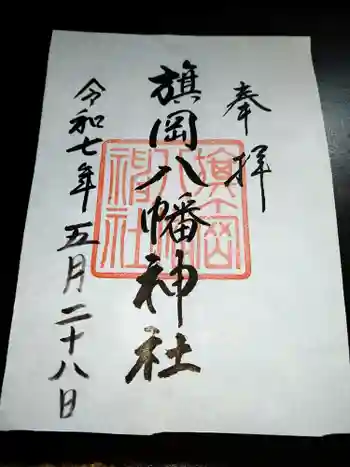 奉拝
旗岡八幡神社
令和七年五月二十八日
旗岡
八幡
神社